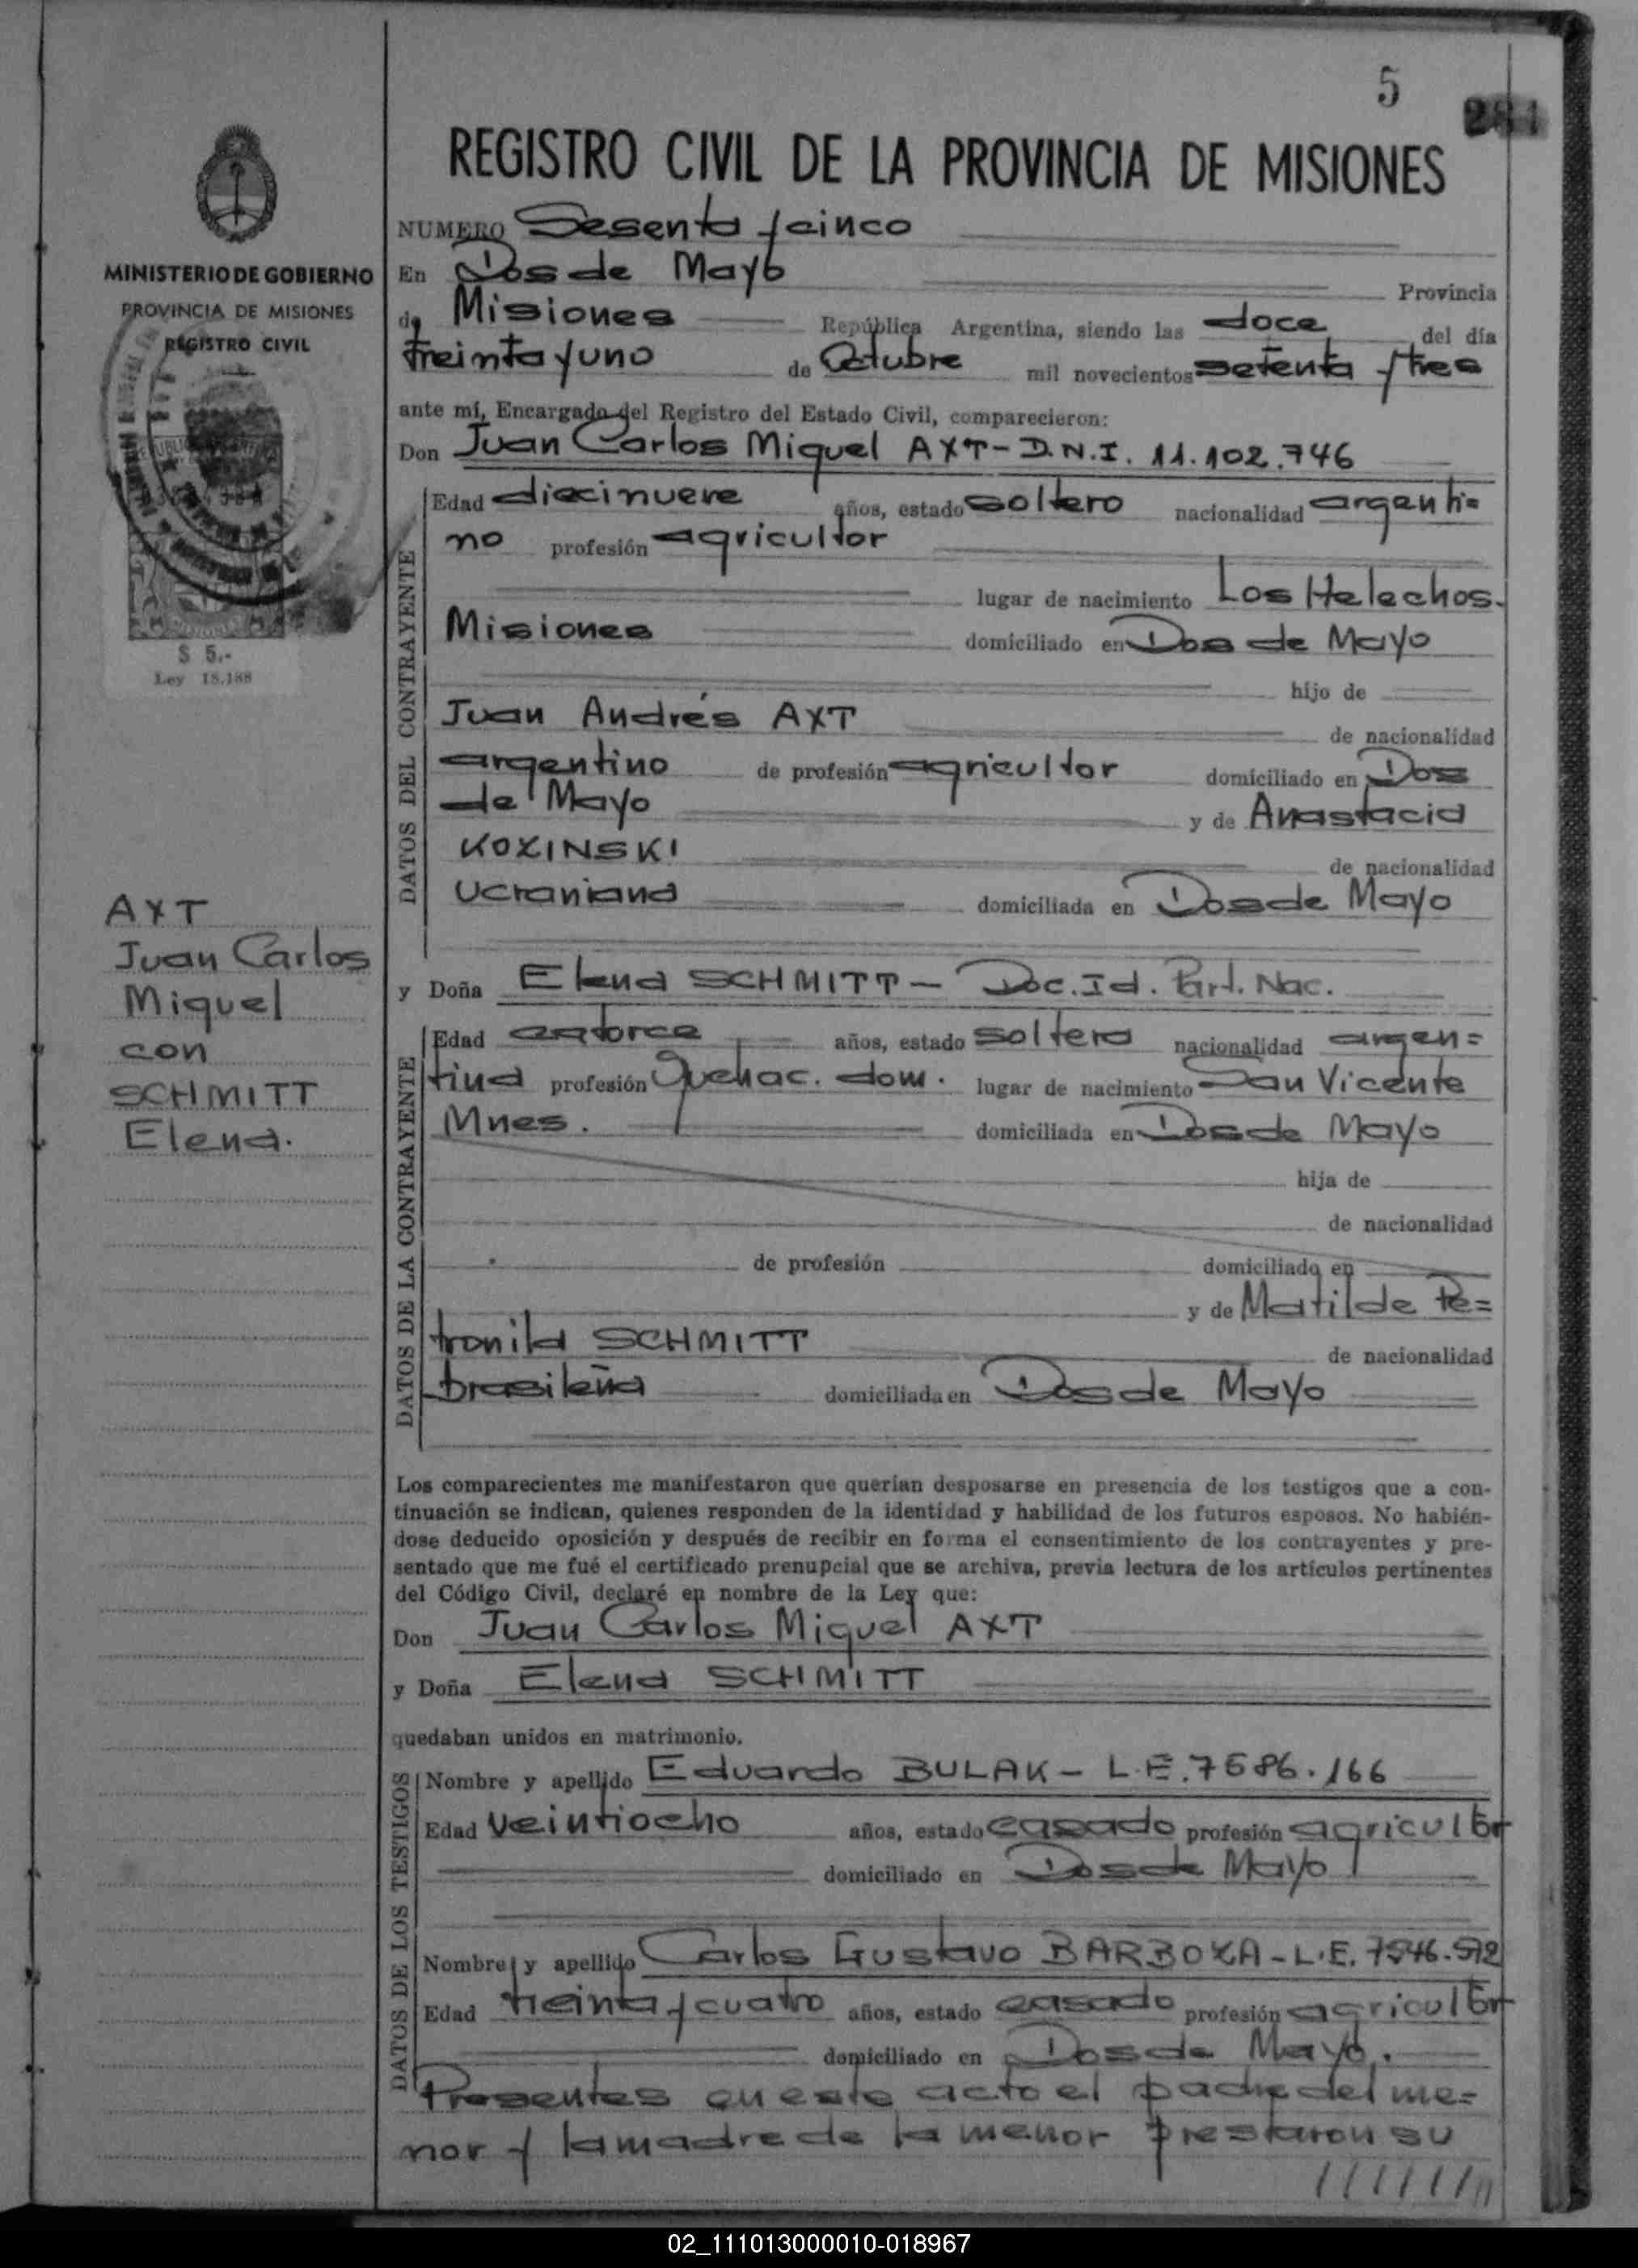 5
284
REGISTRO CIVIL DE LA PROVINCIA DE MISIONES
MINISTERIO DE GOBIERNO
PROVINCIA DE MISIONES
REGISTRO CIVIL
$ 5.-
Ley 18.188
AXT
Juan Carlos
Miguel
con
SCHMITT
Elena.
NUMERO Sesenta y cinco
En Dos de Mayo Provincia
de Misiones República Argentina, siendo las doce del día
treinta y uno de Octubre mil novecientos setenta y tres
ante mí, Encargado del Registro del Estado Civil, comparecieron:
Don Juan Carlos Miguel AXT - D.N.I. 11.102.746
DATOS DEL CONTRAYENTE
Edad diecinueve años, estado soltero nacionalidad argenti=
no profesión agricultor
lugar de nacimiento Los Helechos.
Misiones domiciliado en Dos de Mayo
hijo de
Juan Andrés AXT de nacionalidad
argentino de profesión agricultor domiciliado en Dos
de Mayo y de Anastacia
KOZINSKI de nacionalidad
Ucraniana domiciliada en Dos de Mayo
y Doña Elena SCHMITT - Doc. Id. Part. Nac.
DATOS DE LA CONTRAYENTE
Edad catorce años, estado soltera nacionalidad argen=
tina profesión Quehac. dom. lugar de nacimiento San Vicente
Mnes. domiciliada en Dos de Mayo
hija de
de nacionalidad
de profesión domiciliado en
y de Matilde Pe=
tronila SCHMITT de nacionalidad
brasileña domiciliada en Dos de Mayo
Los comparecientes me manifestaron que querían desposarse en presencia de los testigos que a con-
tinuación se indican, quienes responden de la identidad y habilidad de los futuros esposos. No habién-
dose deducido oposición y después de recibir en forma el consentimiento de los contrayentes y pre-
sentado que me fué el certificado prenupcial que se archiva, previa lectura de los artículos pertinentes
del Código Civil, declaré en nombre de la Ley que:
Don Juan Carlos Miguel AXT
y Doña Elena SCHMITT
quedaban unidos en matrimonio.
DATOS DE LOS TESTIGOS
Nombre y apellido Eduardo BULAK - L.E. 7586.166
Edad veintiocho años, estado casado profesión agricultor
domiciliado en Dos de Mayo
Nombre y apellido Carlos Gustavo BARBOZA - L.E. 7546.572
Edad treinta y cuatro años, estado casado profesión agricultor
domiciliado en Dos de Mayo.
Presentes en este acto el padre del me=
nor y la madre de la menor prestaron su
////////
02_111013000010-018967